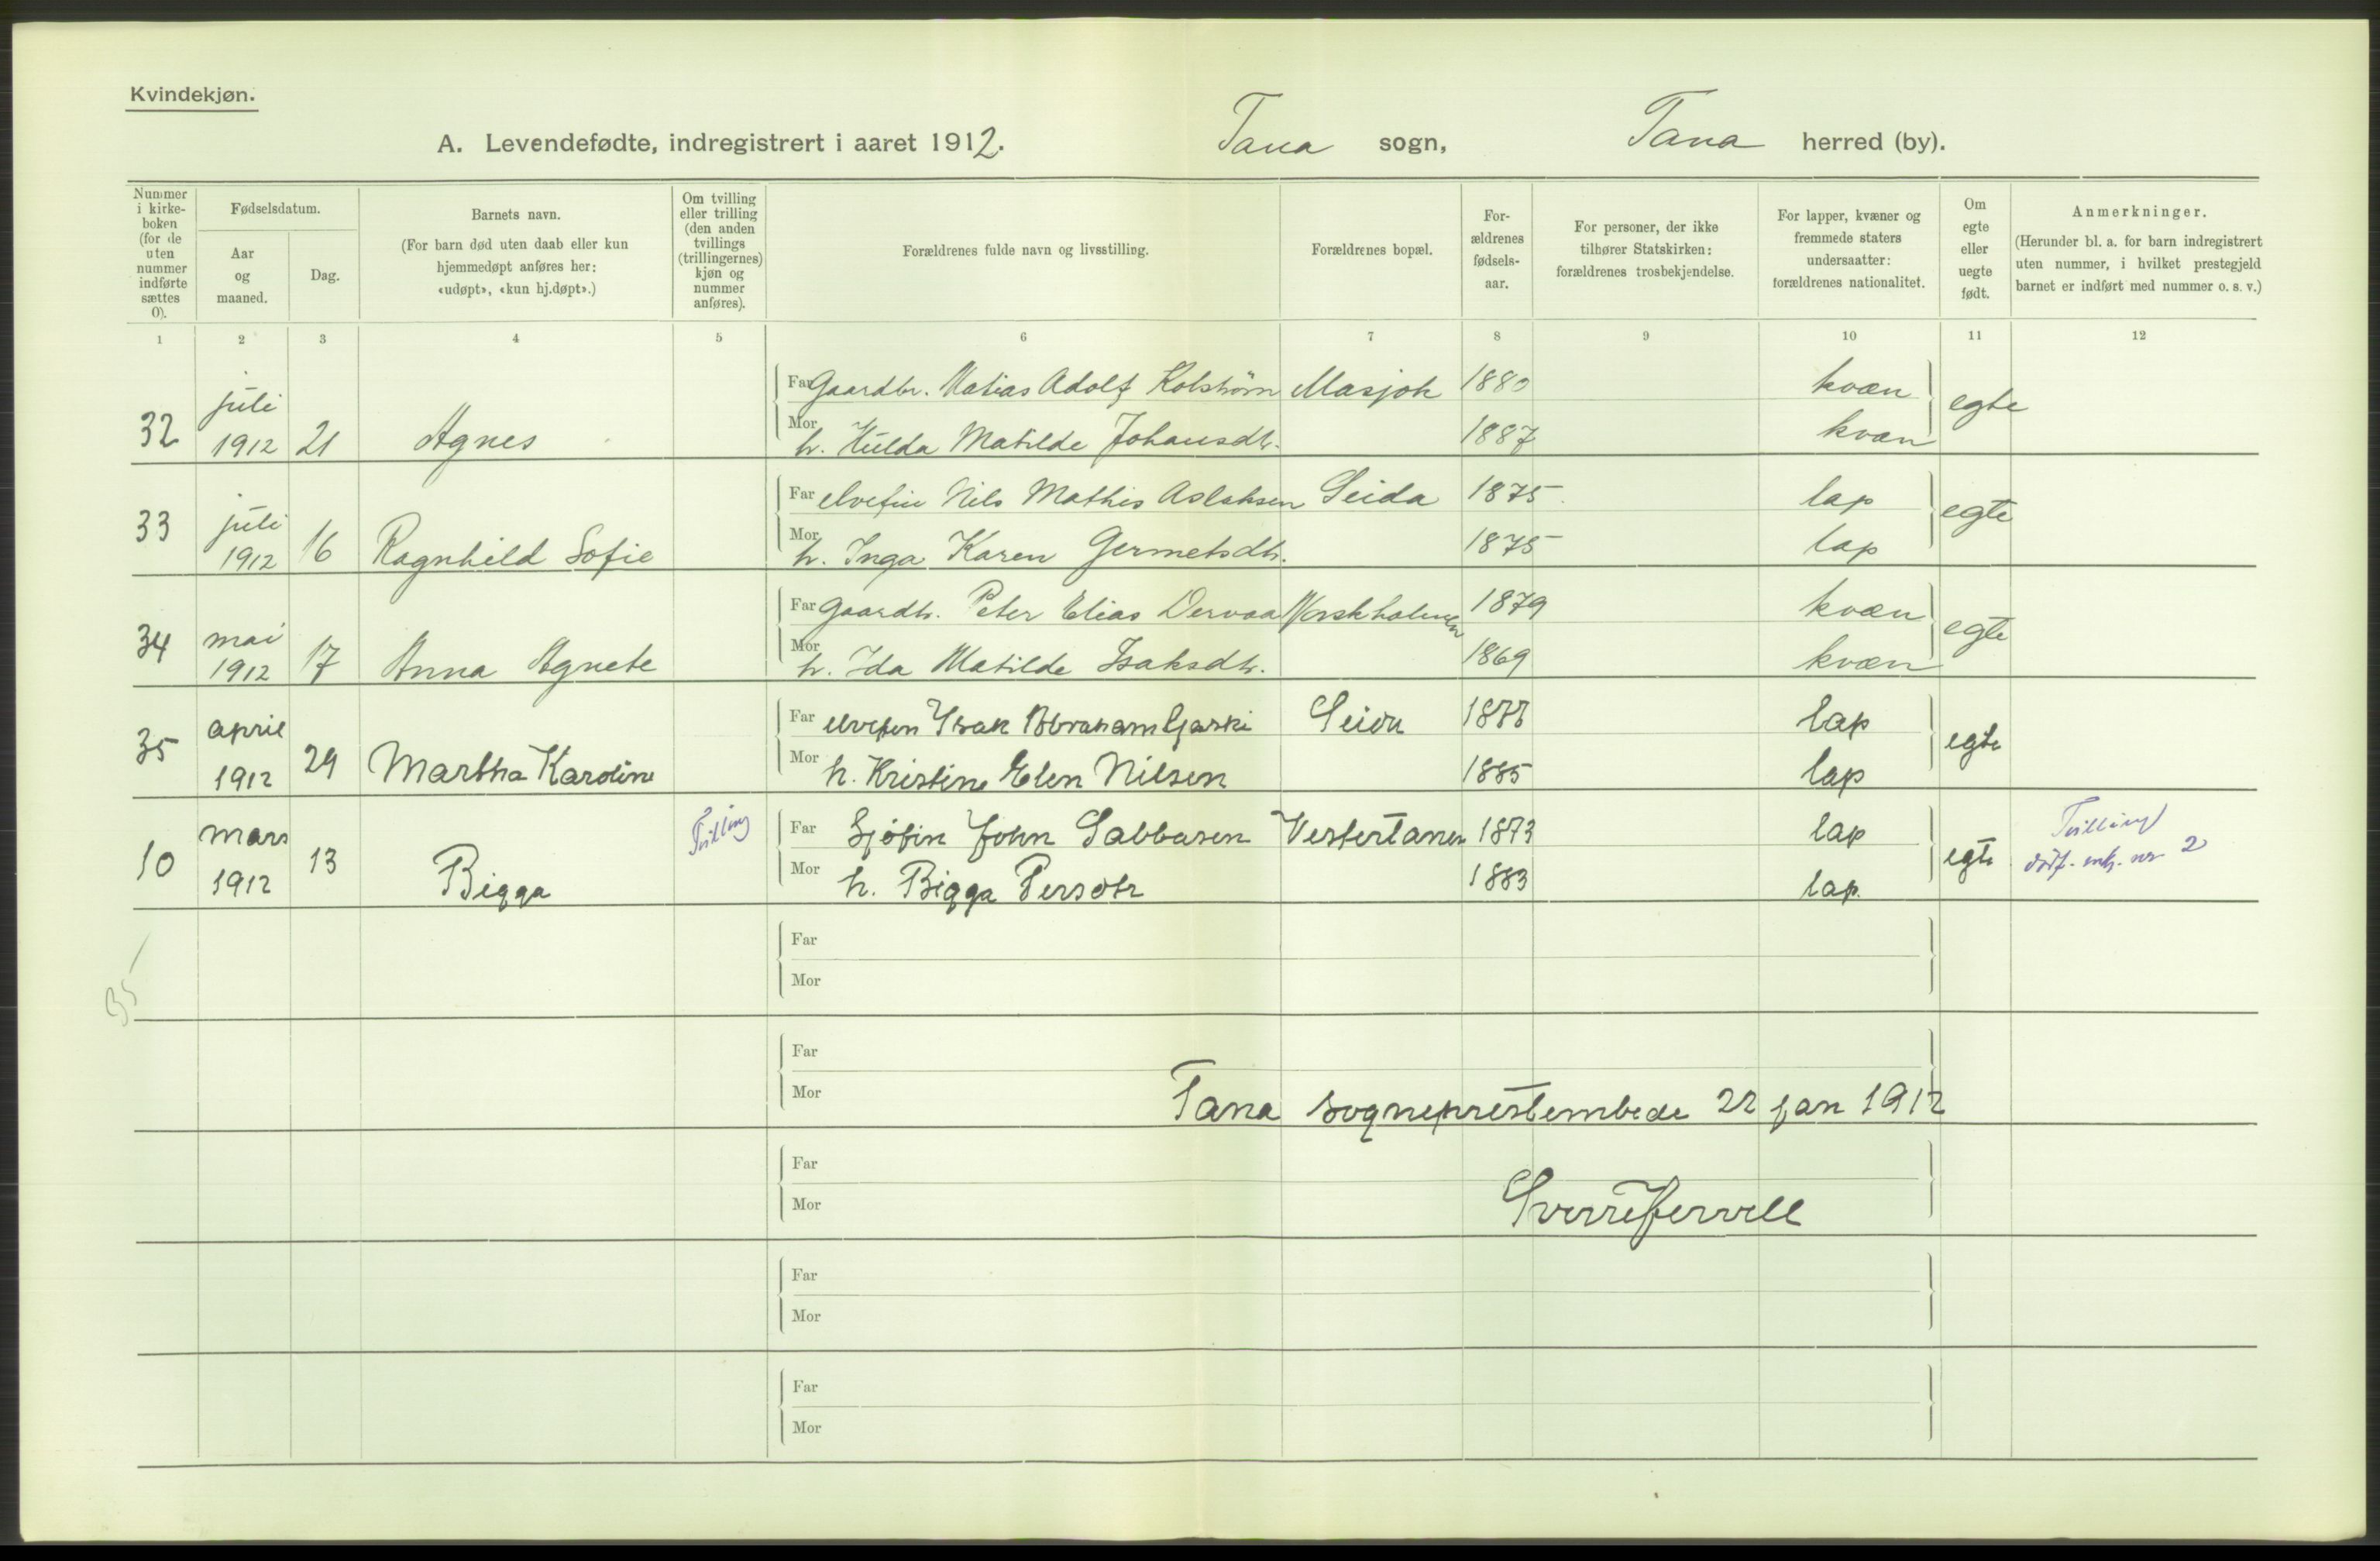 Kvindekjøn.
A. Levendefødte, indregistrert i aaret 1912. Tana sogn, Tana herred (by).
Nummer i kirke- boken (for de uten nummer indførte sættes 0).
Fødselsdatum.
Aar og maaned.
Dag.
Barnets navn.
(For barn død uten daab eller kun hjemmedøpt anføres her: «udøpt», «kun hj.døpt».)
Om tvilling eller trilling (den anden tvillings (trillingernes) kjøn og nummer anføres).
Forældrenes fulde navn og livsstilling.
Forældrenes bopæl.
For- ældrenes fødsels- aar.
For personer, der ikke tilhører Statskirken: forældrenes trosbekjendelse.
For lapper, kvæner og fremmede staters undersaatter: forældrenes nationalitet.
Om egte eller uegte født.
Anmerkninger.
(Herunder bl. a. for barn indregistrert uten nummer, i hvilket prestegjeld barnet er indført med nummer o. s. v.)
1 2 3 4 5 6 7 8 9 10 11 12
Far Gaardbr. Matias Adolf Kolström Masjok 1880 kvæn
32 juli 1912 21 Agnes egte
Mor h. Hulda Matilde Johansdtr. 1887 kvæn
Far elvefin Nils Mathis Aslaksen Seida 1875 lap
33 juli 1912 16 Ragnhild Sofie egte
Mor h. Inga Karen Germetsdtr. 1875 lap
Far Gaardbr. Peter Elias Dervaa Norskholmen 1879 kvæn
34 mai 1912 17 Anna Agnete egte
Mor h. Ida Matilde Isaksdtr. 1869 kvæn
Far elvefin Isak Abraham Gjaski Seida 1877 lap
35 april 1912 29 Martha Karoline egte
Mor h. Kristine Elen Nilsen 1885 lap
Far Sjøfin John Sabbasen Vestertanen 1873 lap
10 mars 1912 13 Bigga Tvilling egte Tvilling
Mor h. Bigga Persdtr 1883 lap. nr 2
Far
Mor
35
Far
Mor
Tana sogneprestembede 22 jan 1912
Far
Mor
Sverre Hervell
Far
Mor
Far
Mor